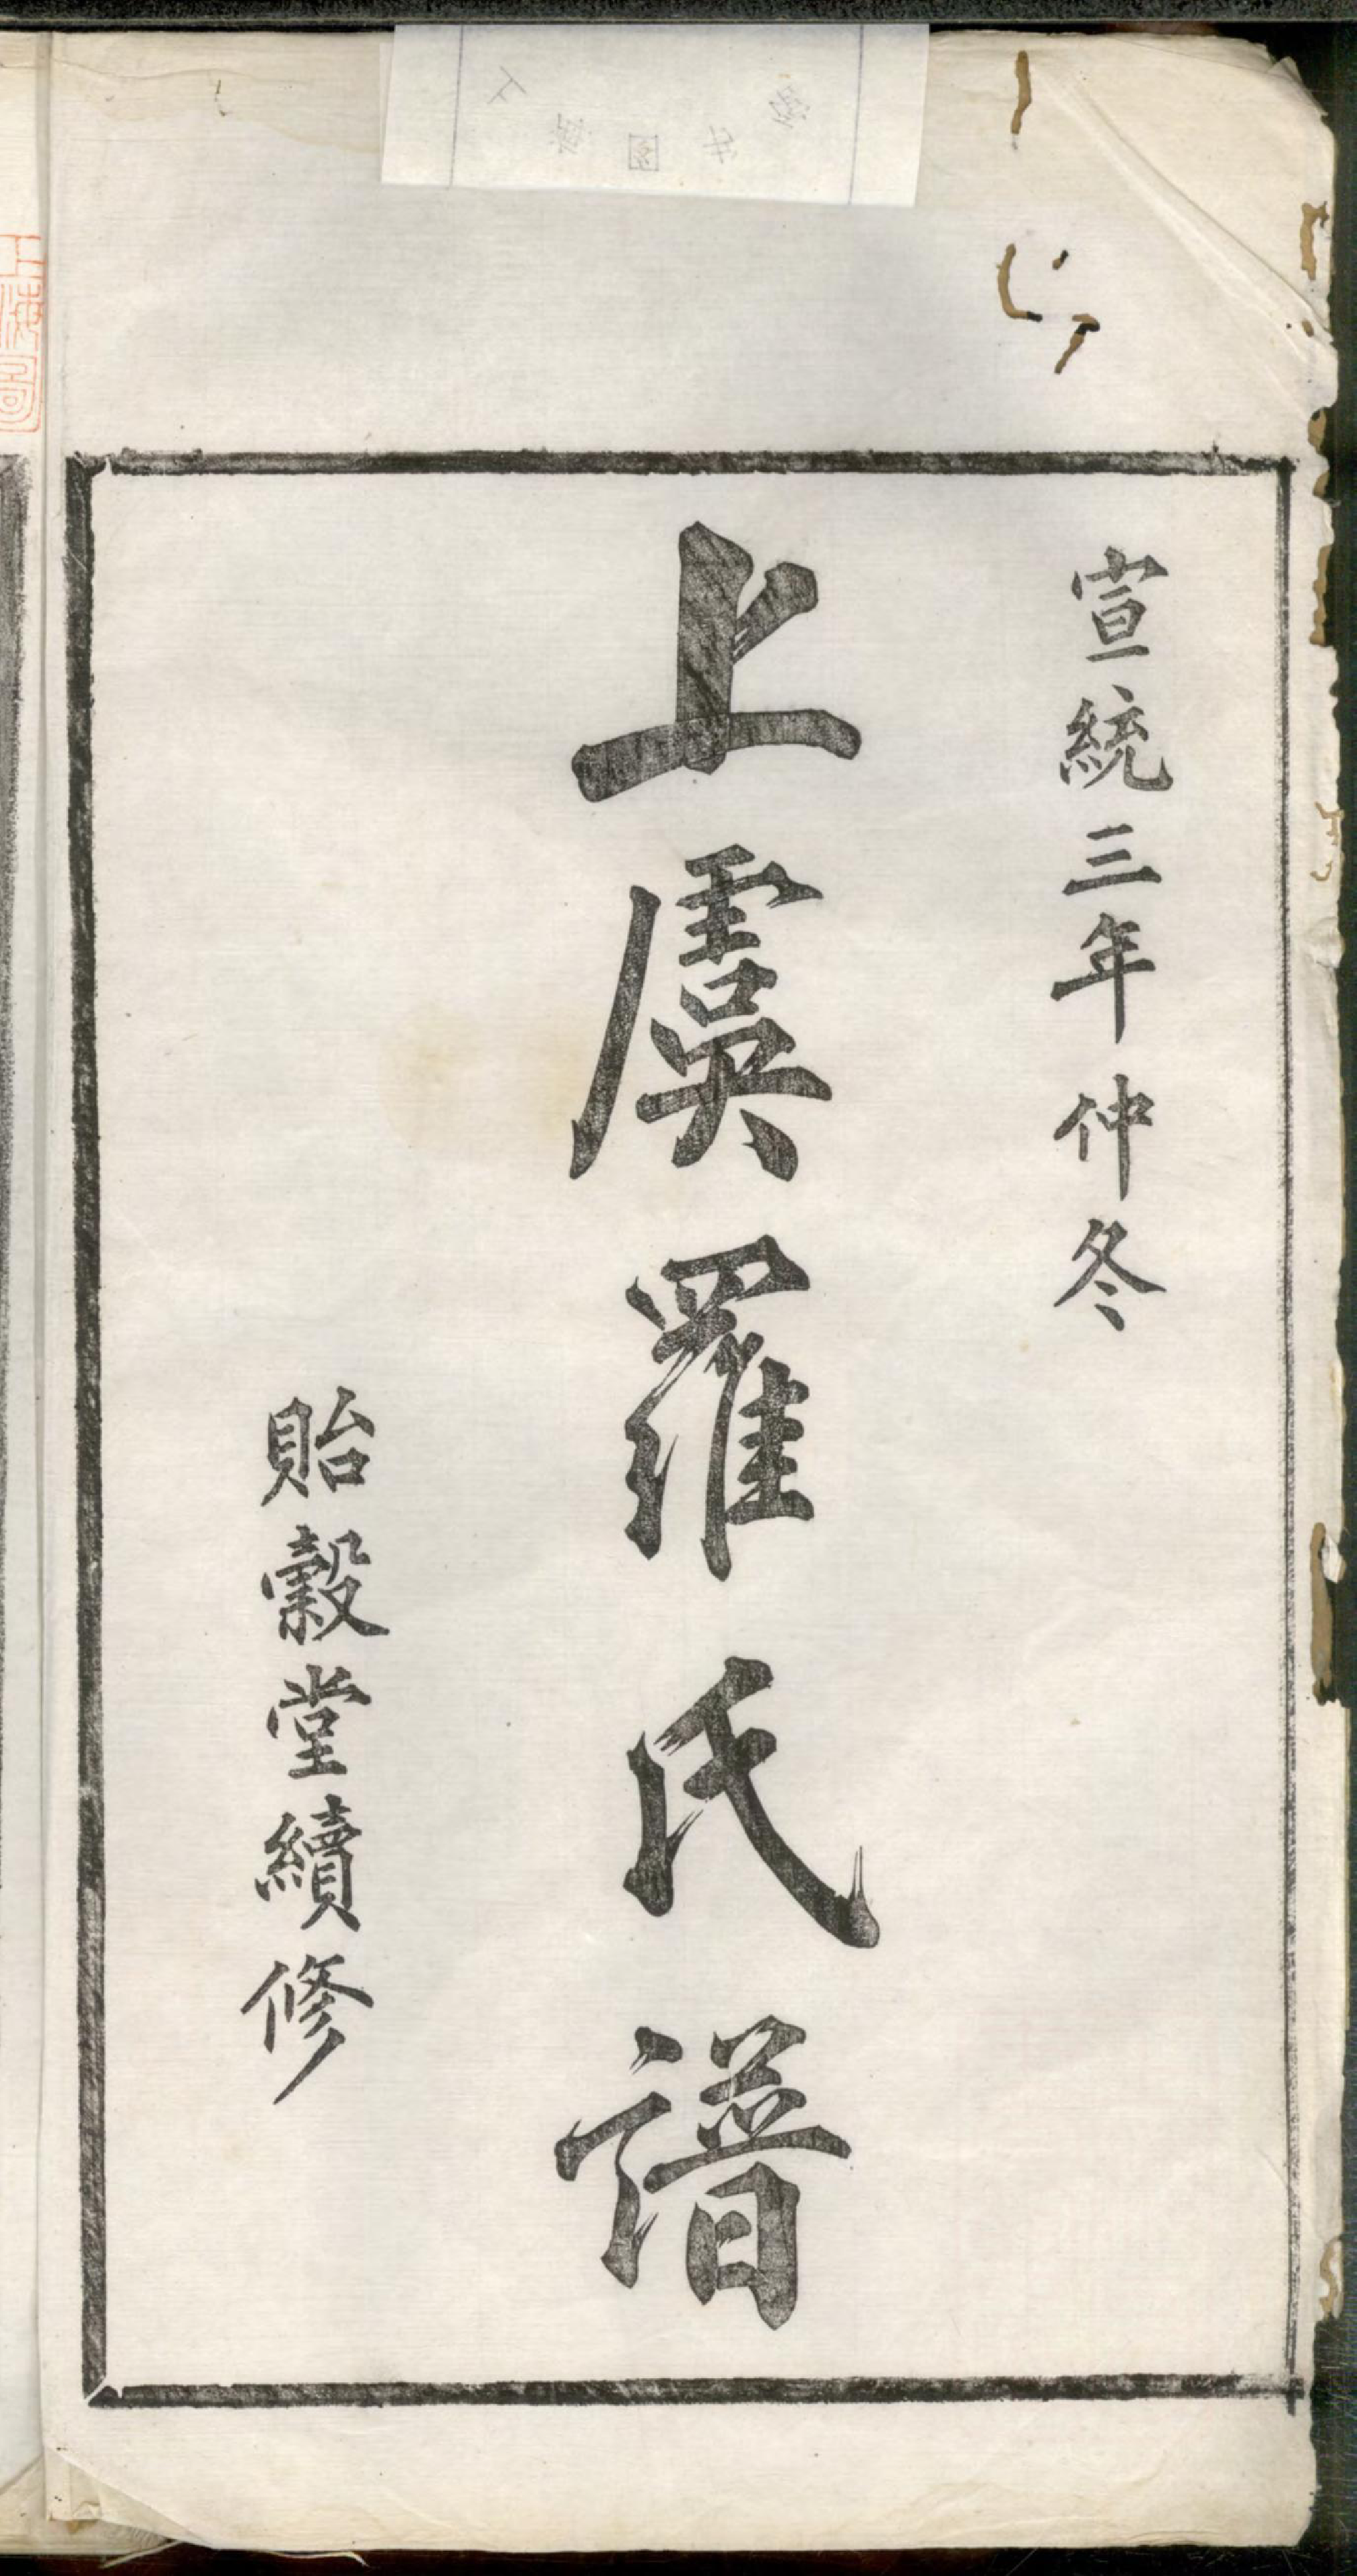 宣統三年仲冬
上虞羅氏譜
貽穀堂續修
上海圖